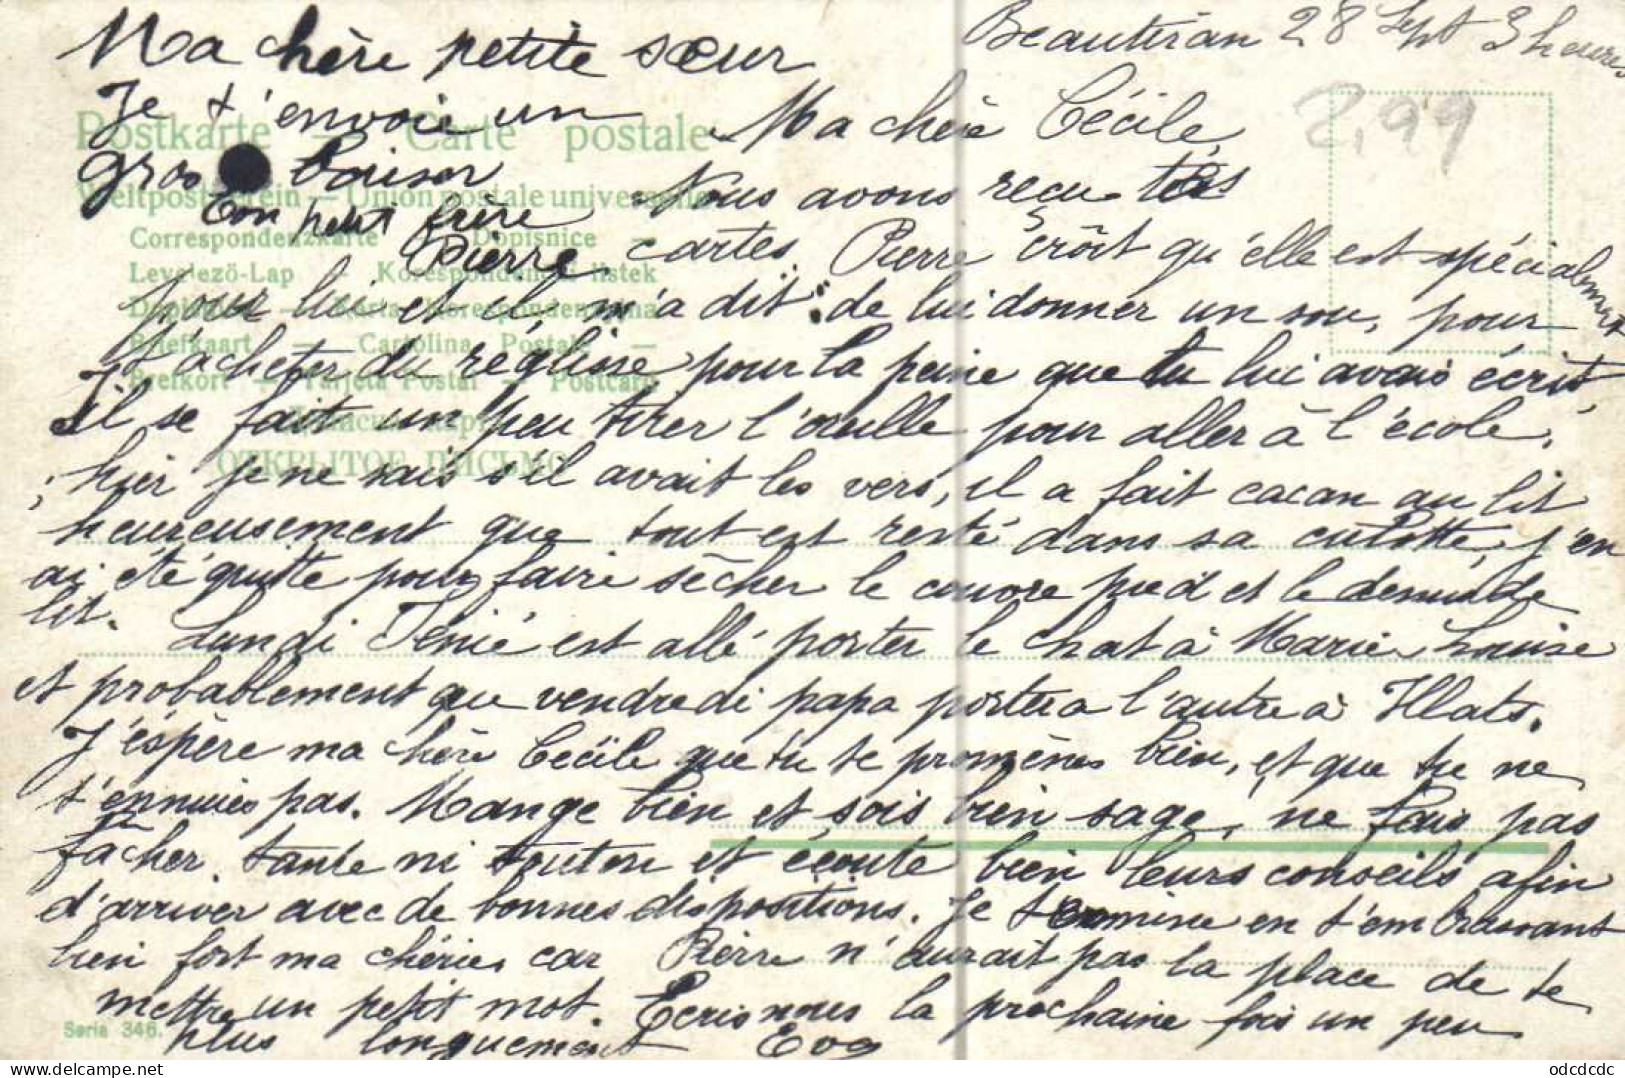 Beautiran 28 Sept 3 heures
Ma chère petite sœur
Je t'envoie un
gros baiser
Ton petit frère
Pierre
2,99
Postkarte — Carte postale
Weltpostverein — Union postale universelle
Correspondenzkarte — Dopisnice —
Levelező-Lap — Korespondenční lístek
Briefkaart — Cartolina Postale —
Brefkort — Tarjeta Postal — Postcard
ОТКРЫТОЕ ПИСЬМО
Ma chère Cécile,
Nous avons reçu tes
cartes, Pierre croit qu'elle est spécialment
pour lui et il m'a dit de lui donner un sou, pour
t'acheter du réglisse pour la peine que tu lui avais écrit,
il se fait un peu tirer l'oreille pour aller à l'école,
hier je ne sais s'il avait les vers, il a fait cacan au lit
heureusement que tout est resté dans sa culotte, j'en
ai été quitte pour faire sècher le couvre pied et le dessus de
lit. Lundi Ténié est allé porter le chat à Marie Louise
et probablement que vendredi papa portera l'autre à Illats.
J'éspère ma chère Cécile que tu te promènes bien, et que tu ne
t'ennuies pas. Mange bien et sois bien sage, ne fais pas
fâcher tante ni tonton et écoute bien leurs conseils afin
d'arriver avec de bonnes dispositions. Je termine en t'embrassant
bien fort ma chérie, car Pierre n'aurait pas la place de te
mettre un petit mot. Ecris nous la prochaine fois un peu
plus longuement Eva
Serie 346.
odcdcdc